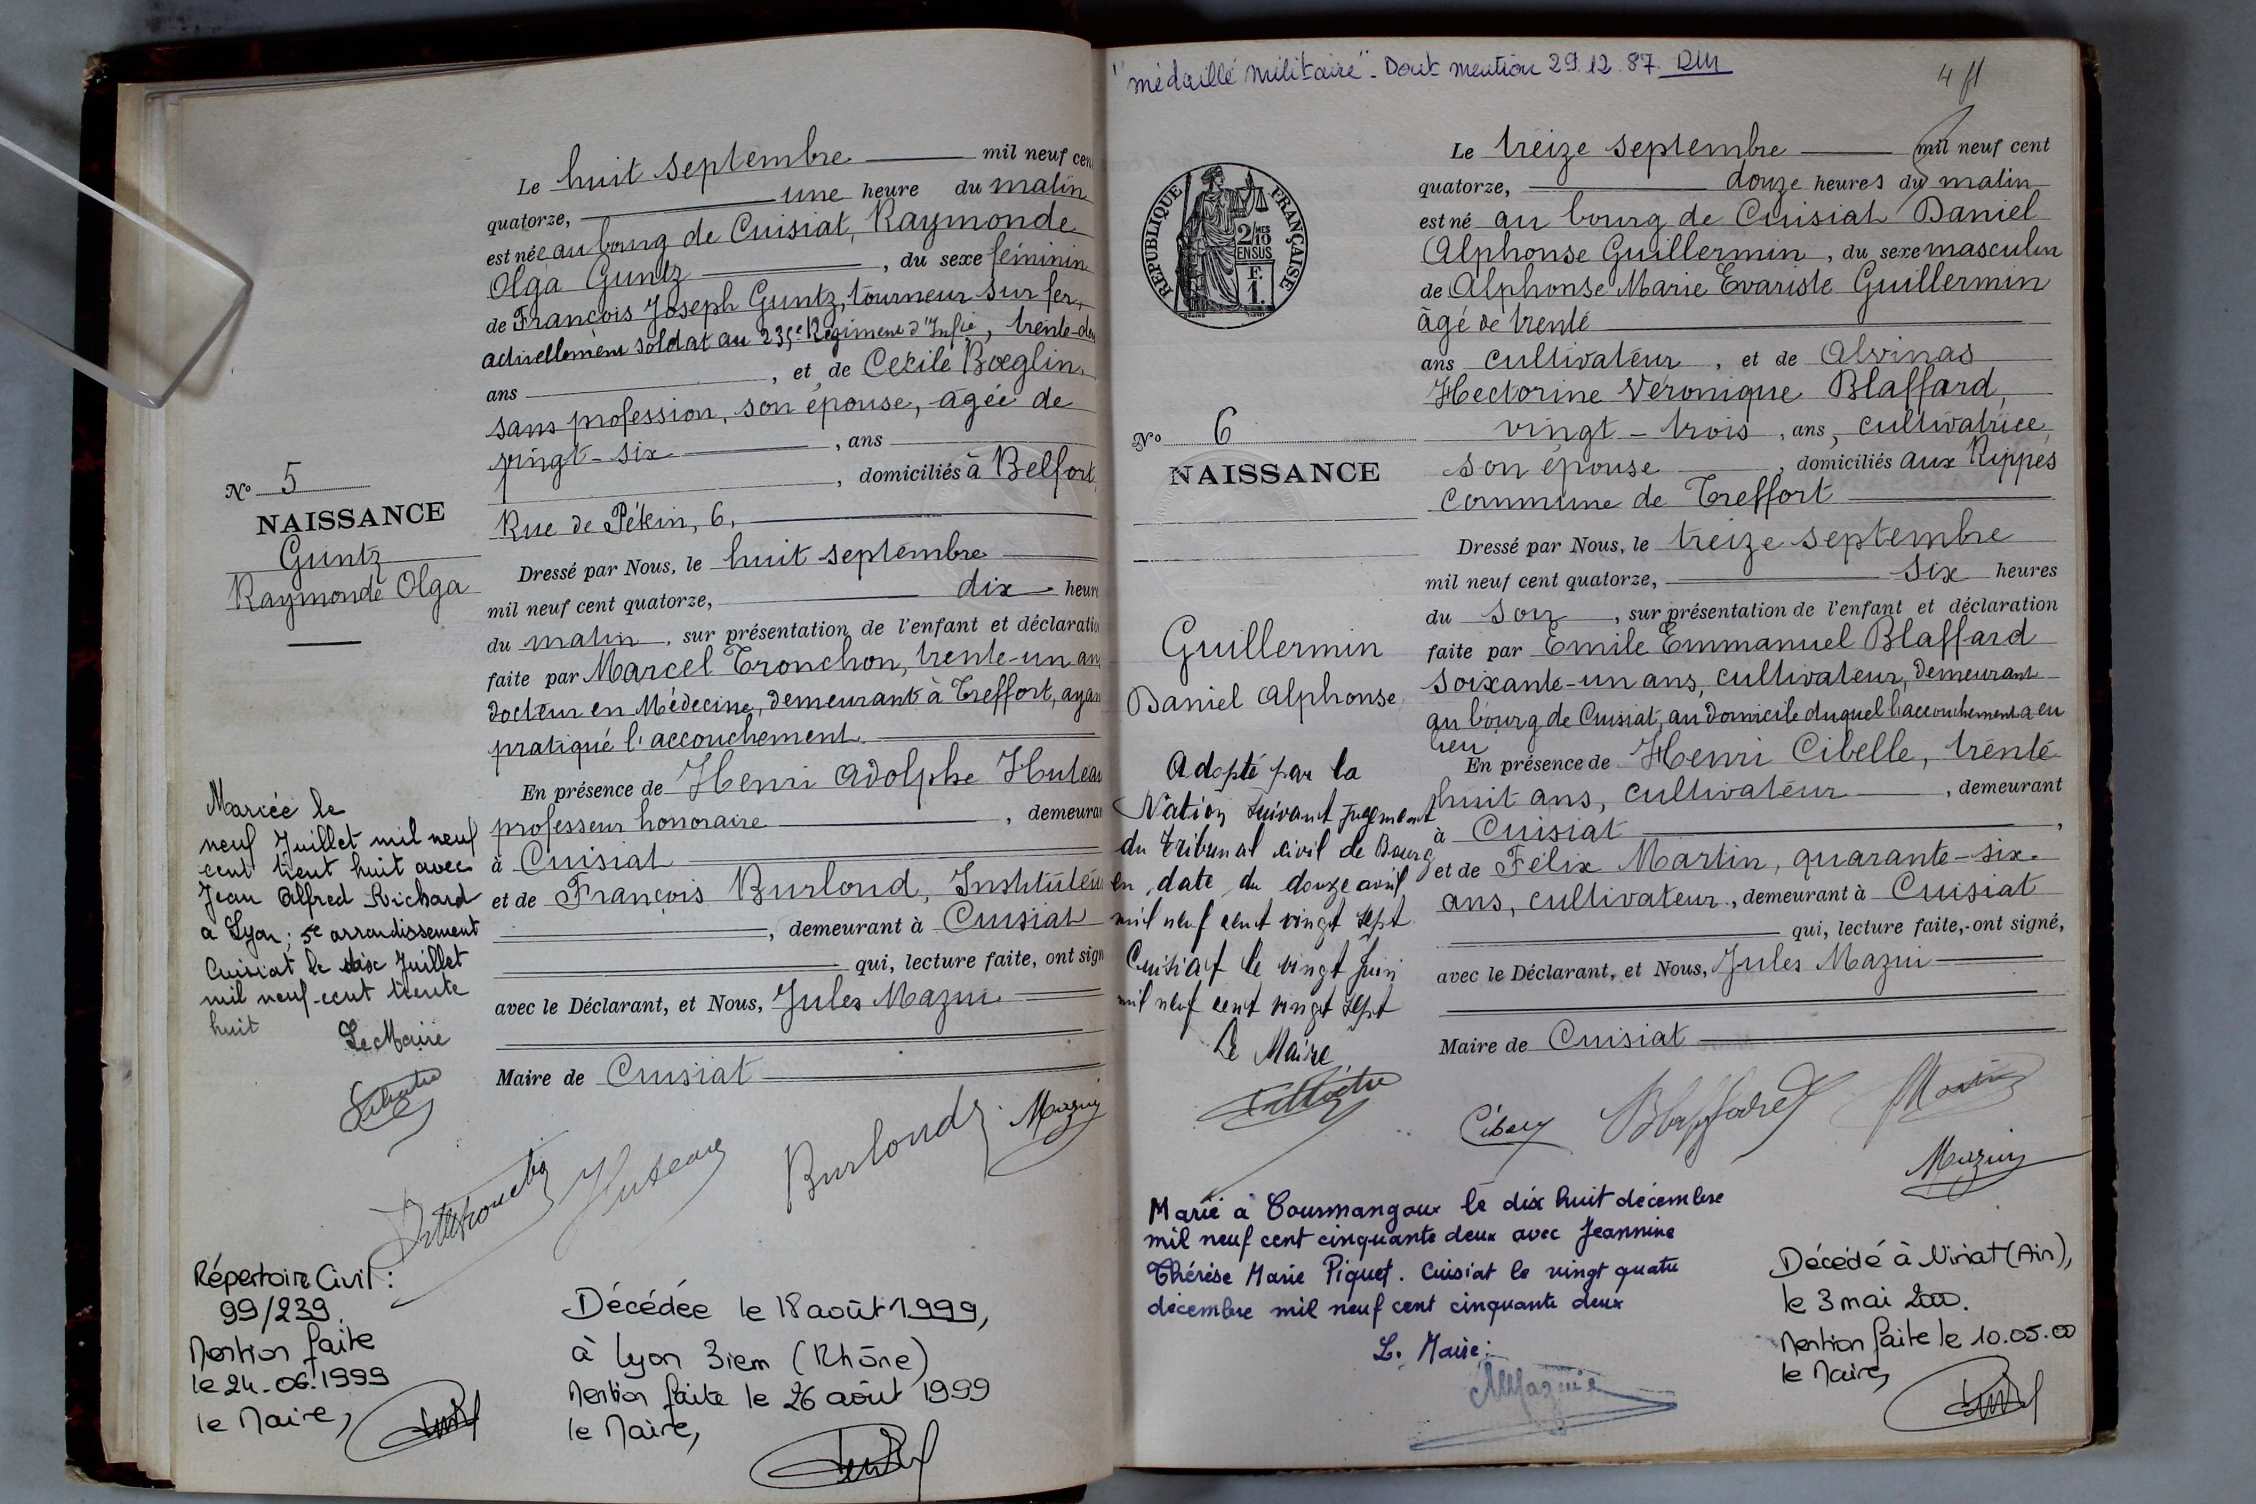 Le huit septembre mil neuf cen
quatorze, une heure du matin
est née au bourg de Cuisiat, Raymonde
Olga Guntz, du sexe féminin
de François Joseph Guntz, tourneur sur fer,
actuellement soldat au 235e Régiment d'Infie, trente-deu
ans, et de Cécile Bœglin,
sans profession, son épouse, âgée de
vingt-six, ans
, domiciliés à Belfort,
Rue de Pékin, 6,
Dressé par Nous, le huit septembre
mil neuf cent quatorze, dix heure
du matin, sur présentation de l'enfant et déclaratio
faite par Marcel Tronchon, trente-un an
docteur en Médecine, demeurant à Treffort, ayan
pratiqué l'accouchement.
En présence de Henri Adolphe Huteau
professeur honoraire, demeuran
à Cuisiat
et de François Burloud, Instituteu
, demeurant à Cuisiat
qui, lecture faite, ont sign
avec le Déclarant, et Nous, Jules Mazuir
Maire de Cuisiat
Huteau Burloud Mazuir
No 5
NAISSANCE
Guntz
Raymonde Olga
Mariée le
neuf Juillet mil neuf
cent trent huit avec
Jean Alfred Richard
a Lyon; 5e arrondissement
Cuisiat le dix Juillet
mil neuf-cent trente
huit
Le Maire
Répertoire Civil:
99/239.
Mention faite
le 24-06.1999
le Maire,
Décédée le 18 août 1999,
à Lyon 3iem (Rhône)
Mention faite le 26 août 1999
le Maire,
"médaillé militaire". Dont mention 29.12.87. DM
4 fl
RÉPUBLIQUE FRANÇAISE
2/10 MES
EN SUS
F.
1.
No 6
NAISSANCE
Guillermin
Daniel Alphonse
Adopté par la
Nation suivant jugement
du Tribunal civil de Bourg
en date du douze avril
mil neuf cent vingt sept
Cuisiat le vingt juin
mil neuf cent vingt sept
Le Maire
Le treize septembre mil neuf cent
quatorze, douze heures du matin
est né au bourg de Cuisiat Daniel
Alphonse Guillermin, du sexe masculin
de Alphonse Marie Evariste Guillermin
âgé de trente
ans cultivateur, et de Alvinas
Hectorine Veronique Blaffard,
vingt-trois, ans, cultivatrice,
son épouse, domiciliés aux Rippes
Commune de Treffort
Dressé par Nous, le treize septembre
mil neuf cent quatorze, six heures
du soir, sur présentation de l'enfant et déclaration
faite par Emile Emmanuel Blaffard
soixante-un ans, cultivateur, demeurant
au bourg de Cuisiat, au domicile duquel l'accouchement a eu
lieu
En présence de Henri Cibelle, trente
huit ans, cultivateur, demeurant
à Cuisiat,
et de Félix Martin, quarante-six
ans, cultivateur, demeurant à Cuisiat
qui, lecture faite, ont signé,
avec le Déclarant, et Nous, Jules Mazuir
Maire de Cuisiat
Blaffard Martin
Mazuir
Marié à Courmangoux le dix huit décembre
mil neuf cent cinquante deux avec Jeannine
Thérèse Marie Piquet. Cuisiat le vingt quatre
décembre mil neuf cent cinquante deux
Le Maire:
Décédé à Viriat (Ain),
le 3 mai 2000.
Mention faite le 10.05.00
le Maire,